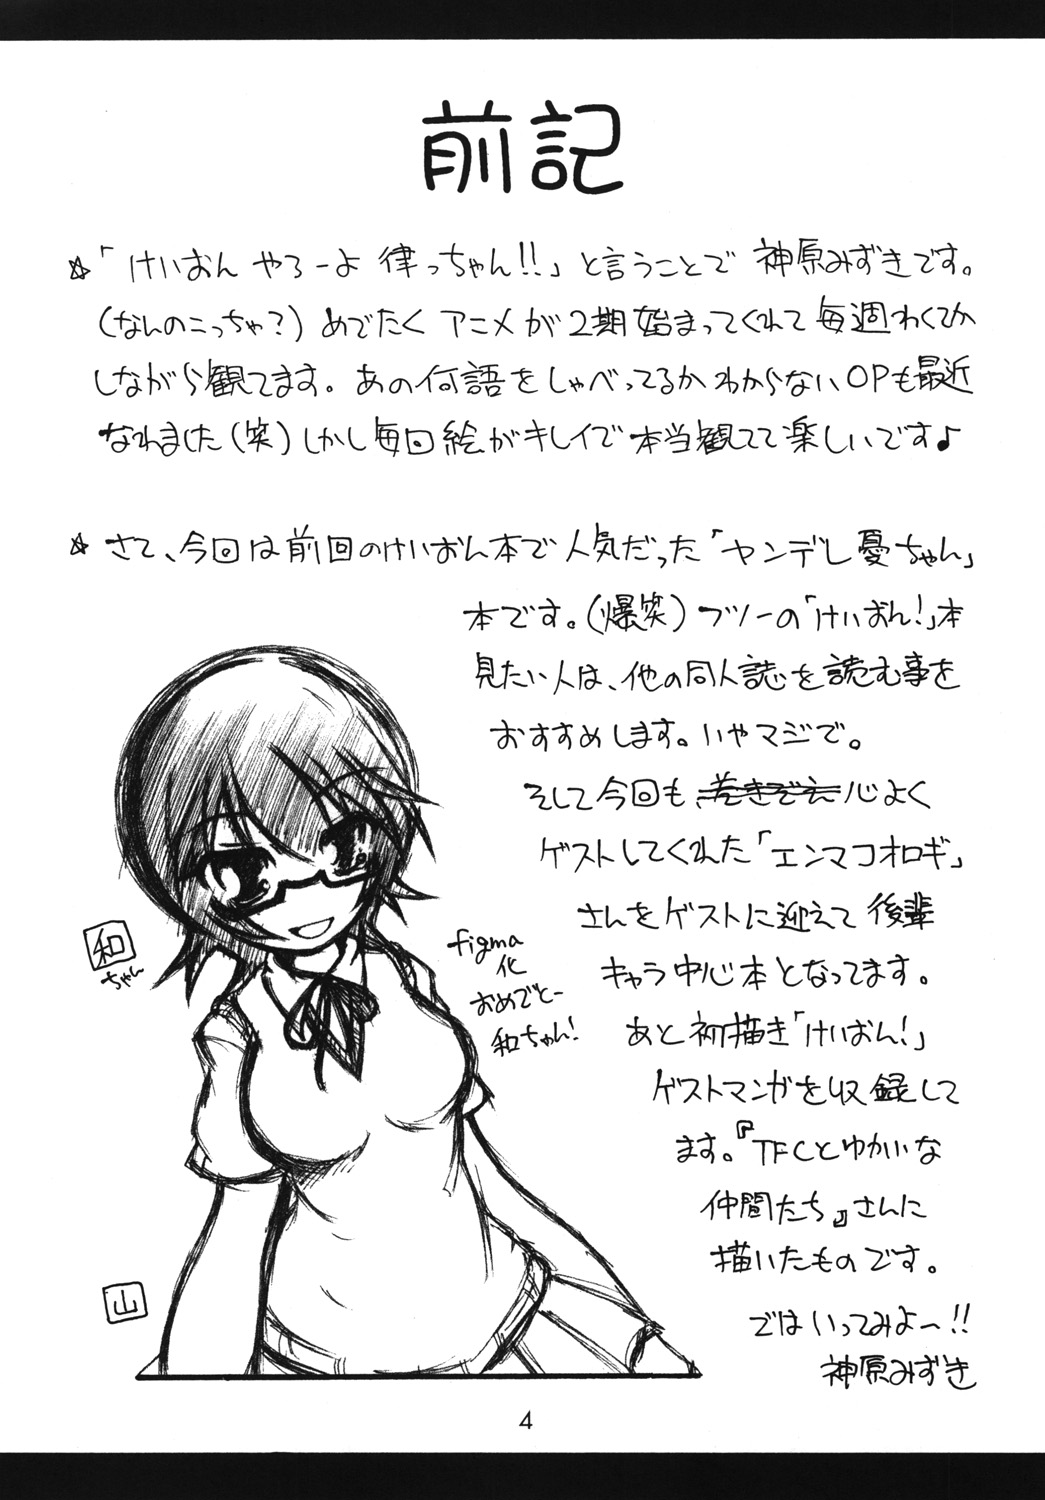 前記
☆「けいおん やろーよ 律っちゃん!!」と言うことで 神原みずきです。
(なんのこっちゃ?) めでたく アニメが2期始まってくれて 毎週わくてか
しながら観てます。あの何語をしゃべってるかわからないOPも最近
なれました(笑)しかし毎回絵がキレイで本当観てて楽しいです♪
☆ さて、今回は前回のけいおん本で人気だった「ヤンデレ憂ちゃん」
本です。(爆笑) フツーの「けいおん!」本
見たい人は、他の同人誌を読む事を
おすすめします。いやマジで。
そして今回も 巻きぞえ 心よく
ゲストしてくれた「エンマコオロギ」
さんをゲストに迎えて 後輩
キャラ中心本となってます。
あと初描き「けいおん!」
ゲストマンガを収録して
ます。『TFCとゆかいな
仲間たち』さんに
描いたものです。
ではいってみよ〜!!
神原みずき
和
ちゃん
figma
化
おめでとー
和ちゃん!
山
4